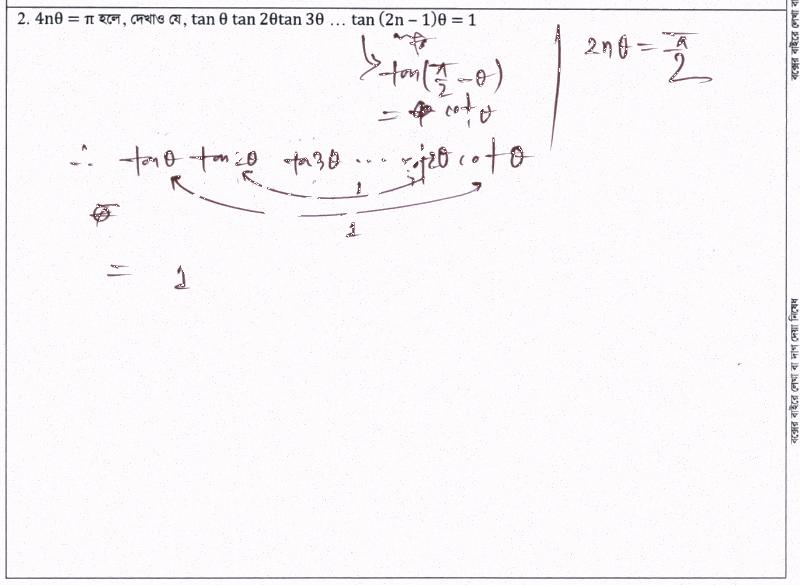 2. 4nθ = π হলে, দেখাও যে, tan θ tan 2θtan 3θ … tan (2n − 1)θ = 1
2nθ = π/2
tan(π/2 − θ)
= cot θ
∴ tanθ tan 2θ tan3θ .... cot2θ cot θ
1
1
= 1
বক্সের বাইরে লেখা বা দাগ দেয়া নিষেধ